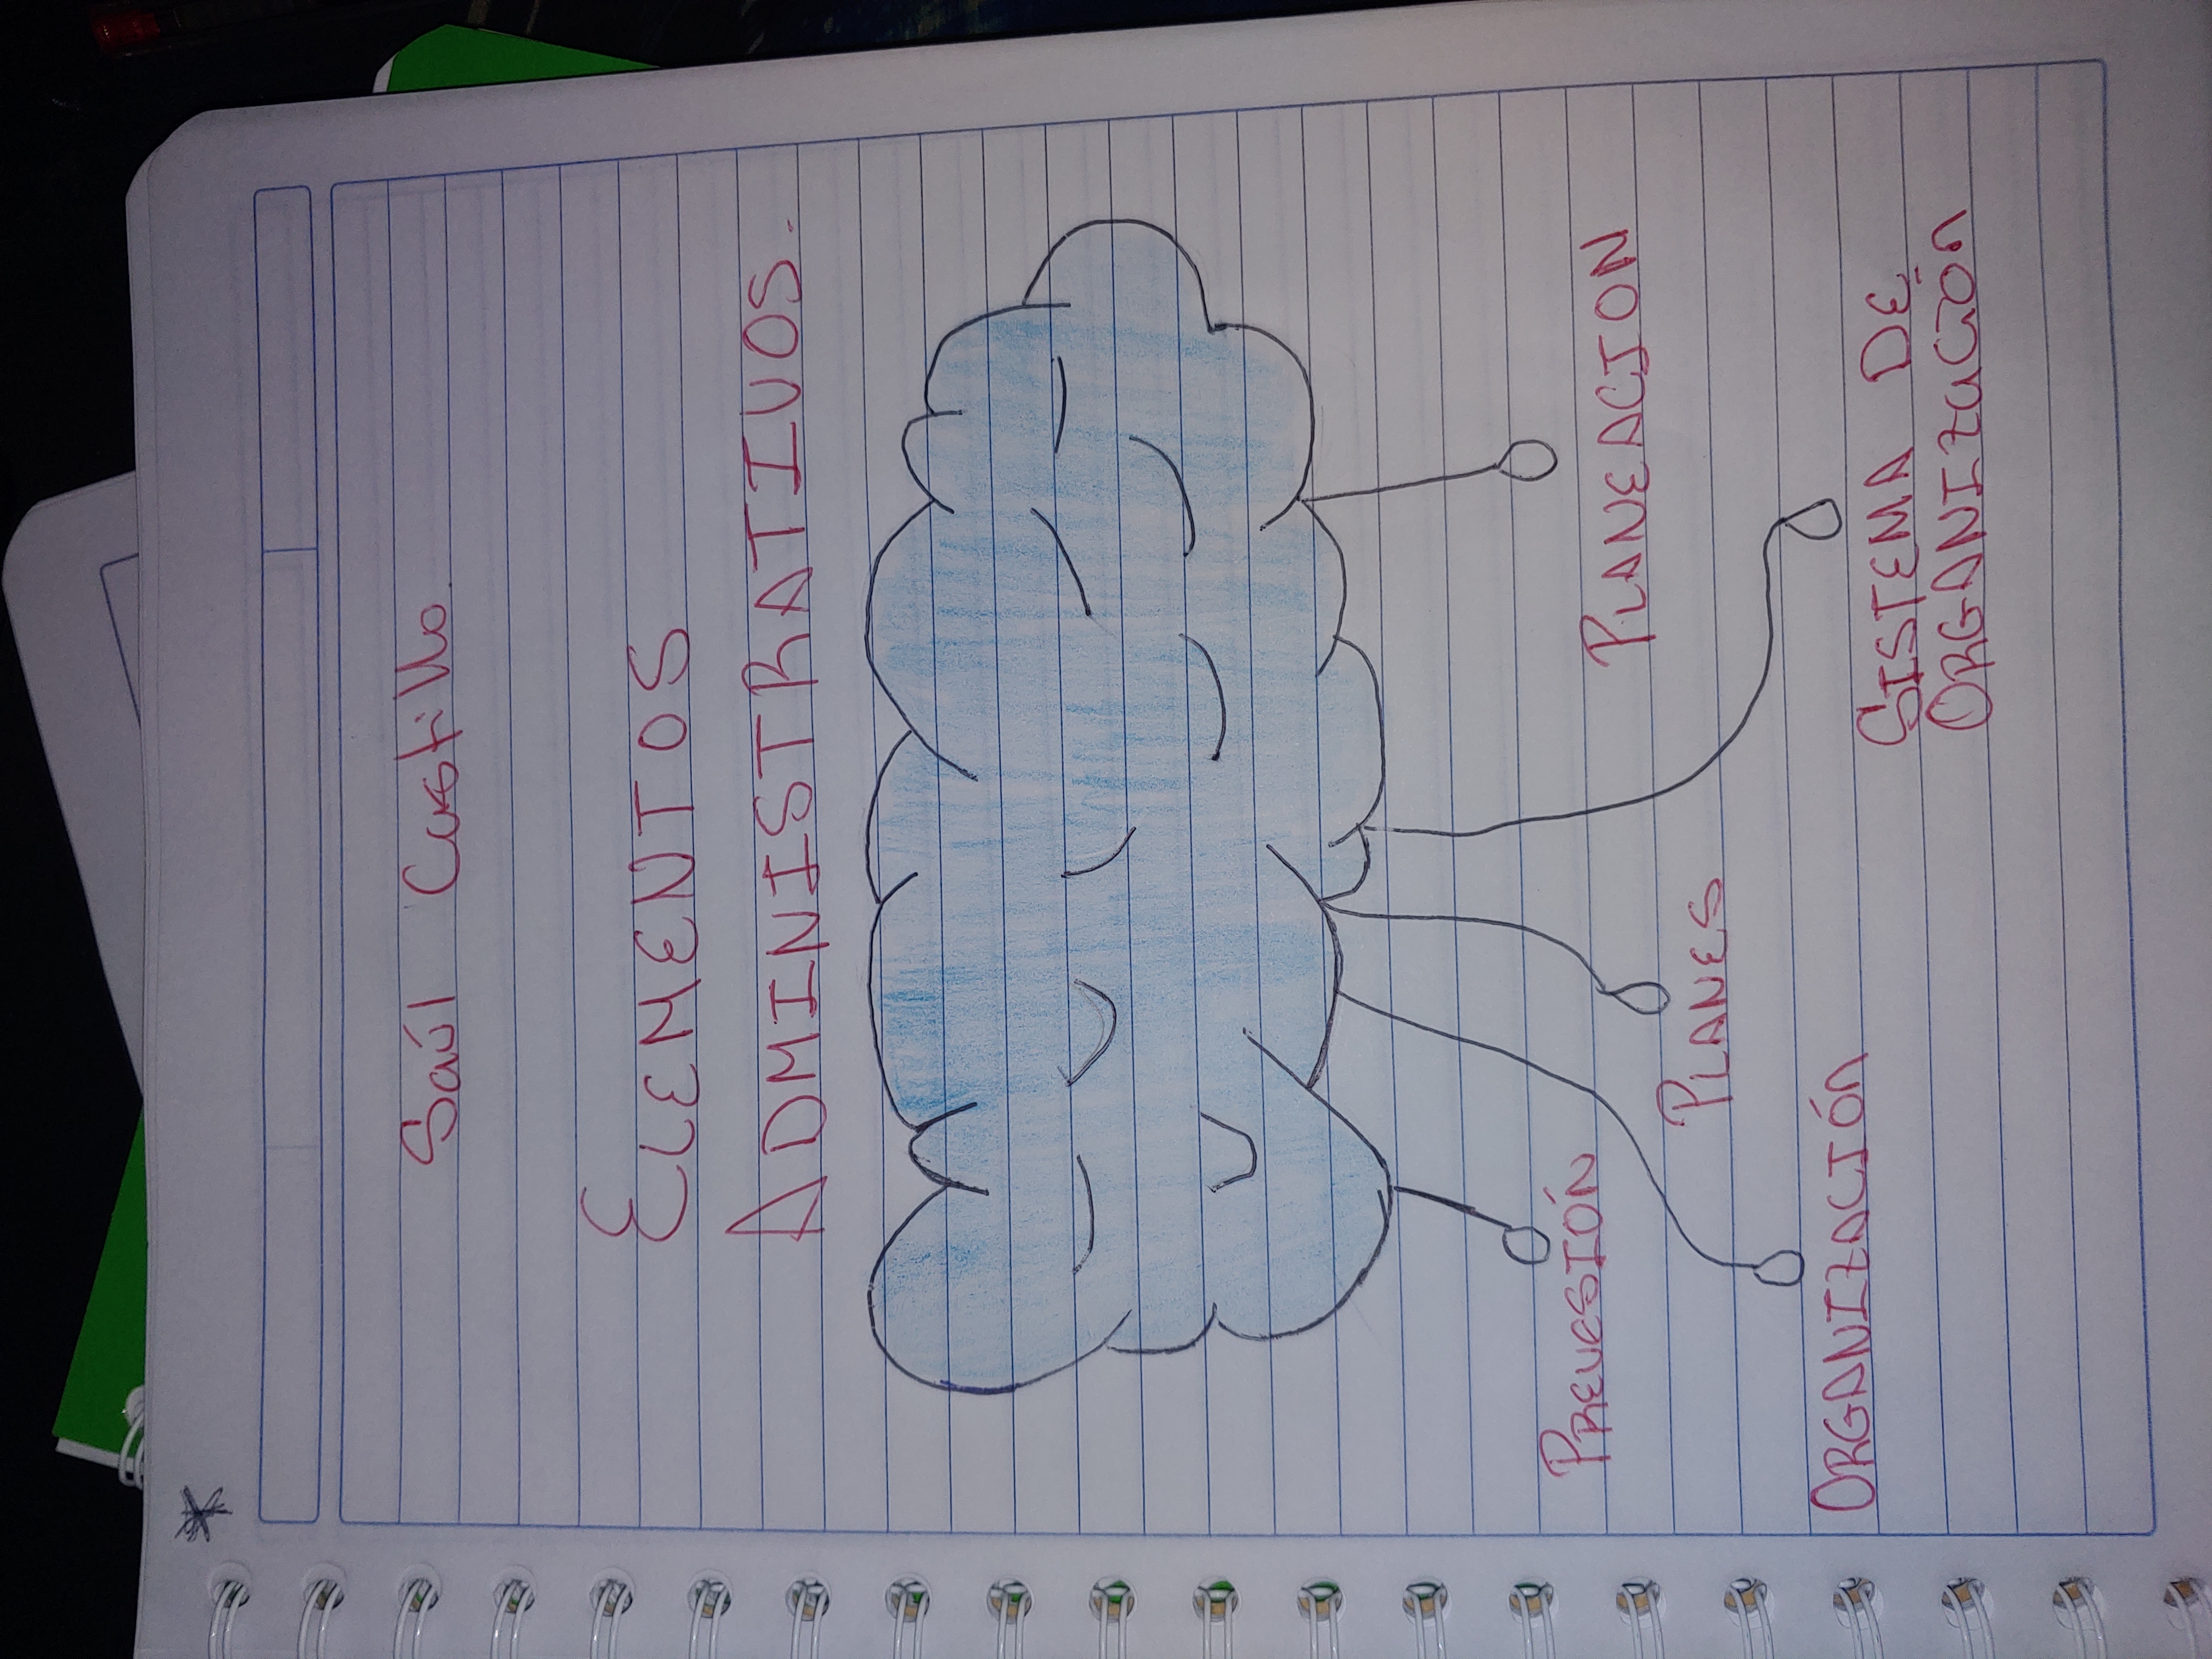 Saúl Castillo.
ELEMENTOS
ADMINISTRATIVOS.
PREVESIÓN
ORGANIZACIÓN
PLANES
PLANEACION
SISTEMA DE
ORGANIZACIÓN